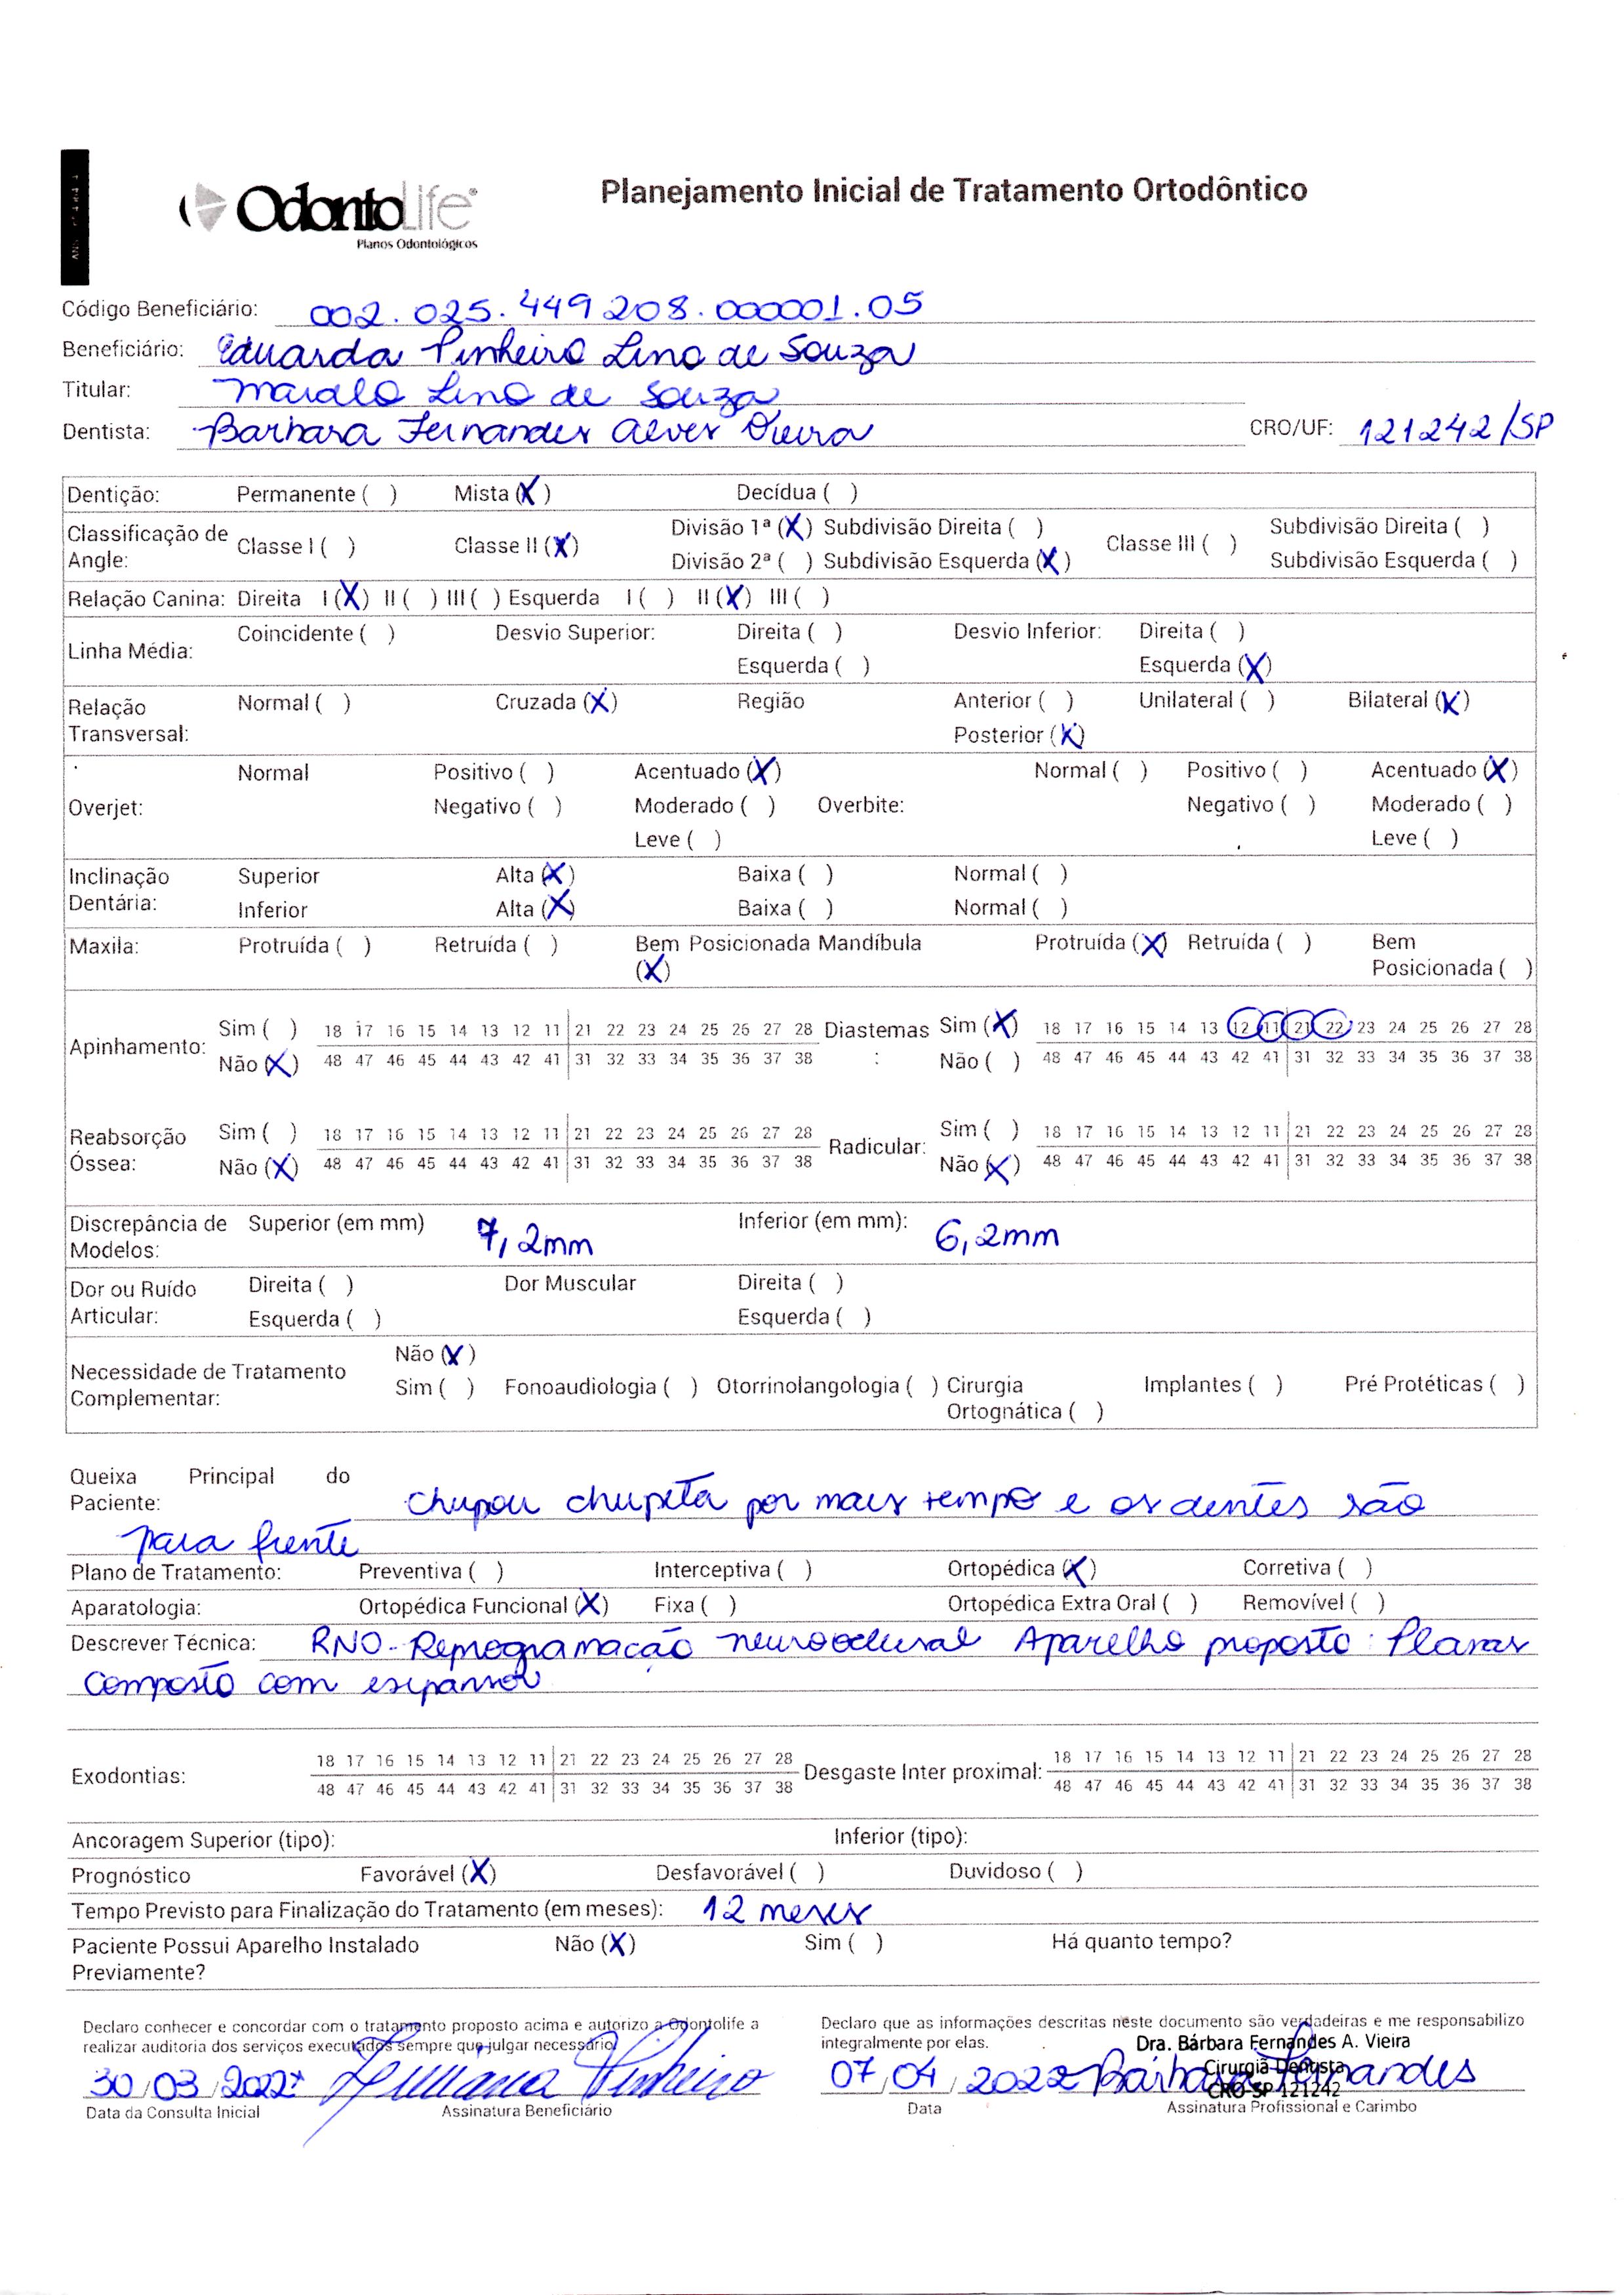 OdontoLife®
Planos Odontológicos
Planejamento Inicial de Tratamento Ortodôntico
Código Beneficiário: 002.025.449208.000001.05
Beneficiário: Eduarda Pinheiro Lino de Souza
Titular: Lino de Souza
Dentista: Barbara Fernandes Alves Vieira CRO/UF: 121242/SP
Dentição: Permanente ( ) Mista (X) Decídua ( )
Classificação de Angle: Classe I ( ) Classe II (X) Divisão 1ª (X) Subdivisão Direita ( ) Classe III ( ) Subdivisão Direita ( )
Divisão 2ª ( ) Subdivisão Esquerda (X) Subdivisão Esquerda ( )
Relação Canina: Direita I (X) II ( ) III ( ) Esquerda I ( ) II (X) III ( )
Linha Média: Coincidente ( ) Desvio Superior: Direita ( ) Desvio Inferior: Direita ( )
Esquerda ( ) Esquerda (X)
Relação Transversal: Normal ( ) Cruzada (X) Região Anterior ( ) Unilateral ( ) Bilateral (X)
Posterior (X)
Overjet: Normal Positivo ( ) Acentuado (X) Overbite: Normal ( ) Positivo ( ) Acentuado (X)
Negativo ( ) Moderado ( ) Negativo ( ) Moderado ( )
Leve ( ) Leve ( )
Inclinação Dentária: Superior Alta (X) Baixa ( ) Normal ( )
Inferior Alta (X) Baixa ( ) Normal ( )
Maxila: Protruída ( ) Retruída ( ) Bem Posicionada (X) Mandíbula Protruída (X) Retruída ( ) Bem Posicionada ( )
Apinhamento: Sim ( ) 18 17 16 15 14 13 12 11 21 22 23 24 25 26 27 28 Diastemas : Sim (X) 18 17 16 15 14 13 12 11 21 22 23 24 25 26 27 28
Não (X) 48 47 46 45 44 43 42 41 31 32 33 34 35 36 37 38 Não ( ) 48 47 46 45 44 43 42 41 31 32 33 34 35 36 37 38
Reabsorção Óssea: Sim ( ) 18 17 16 15 14 13 12 11 21 22 23 24 25 26 27 28 Radicular: Sim ( ) 18 17 16 15 14 13 12 11 21 22 23 24 25 26 27 28
Não (X) 48 47 46 45 44 43 42 41 31 32 33 34 35 36 37 38 Não (X) 48 47 46 45 44 43 42 41 31 32 33 34 35 36 37 38
Discrepância de Modelos: Superior (em mm) 7,2mm Inferior (em mm): 6,2mm
Dor ou Ruído Articular: Direita ( ) Dor Muscular Direita ( )
Esquerda ( ) Esquerda ( )
Necessidade de Tratamento Complementar: Não (X)
Sim ( ) Fonoaudiologia ( ) Otorrinolangologia ( ) Cirurgia Ortognática ( ) Implantes ( ) Pré Protéticas ( )
Queixa Principal do Paciente: Chupou chupeta por mais tempo e os dentes são
para frente
Plano de Tratamento: Preventiva ( ) Interceptiva ( ) Ortopédica (X) Corretiva ( )
Aparatologia: Ortopédica Funcional (X) Fixa ( ) Ortopédica Extra Oral ( ) Removível ( )
Descrever Técnica: RNO - Reprogramação neurooclusal Aparelho proposto: Planas
Composto com expansor
Exodontias: 18 17 16 15 14 13 12 11 21 22 23 24 25 26 27 28 Desgaste Inter proximal: 18 17 16 15 14 13 12 11 21 22 23 24 25 26 27 28
48 47 46 45 44 43 42 41 31 32 33 34 35 36 37 38 48 47 46 45 44 43 42 41 31 32 33 34 35 36 37 38
Ancoragem Superior (tipo): Inferior (tipo):
Prognóstico Favorável (X) Desfavorável ( ) Duvidoso ( )
Tempo Previsto para Finalização do Tratamento (em meses): 12 meses
Paciente Possui Aparelho Instalado Previamente? Não (X) Sim ( ) Há quanto tempo?
Declaro conhecer e concordar com o tratamento proposto acima e autorizo a Odontolife a
realizar auditoria dos serviços executados sempre que julgar necessário
30/03/2022 Juliana Pinheiro
Data da Consulta Inicial Assinatura Beneficiário
Declaro que as informações descritas neste documento são verdadeiras e me responsabilizo
integralmente por elas.
Dra. Bárbara Fernandes A. Vieira
Cirurgiã Dentista
CRO SP 121242
07/04/2022 Bárbara Fernandes
Data Assinatura Profissional e Carimbo